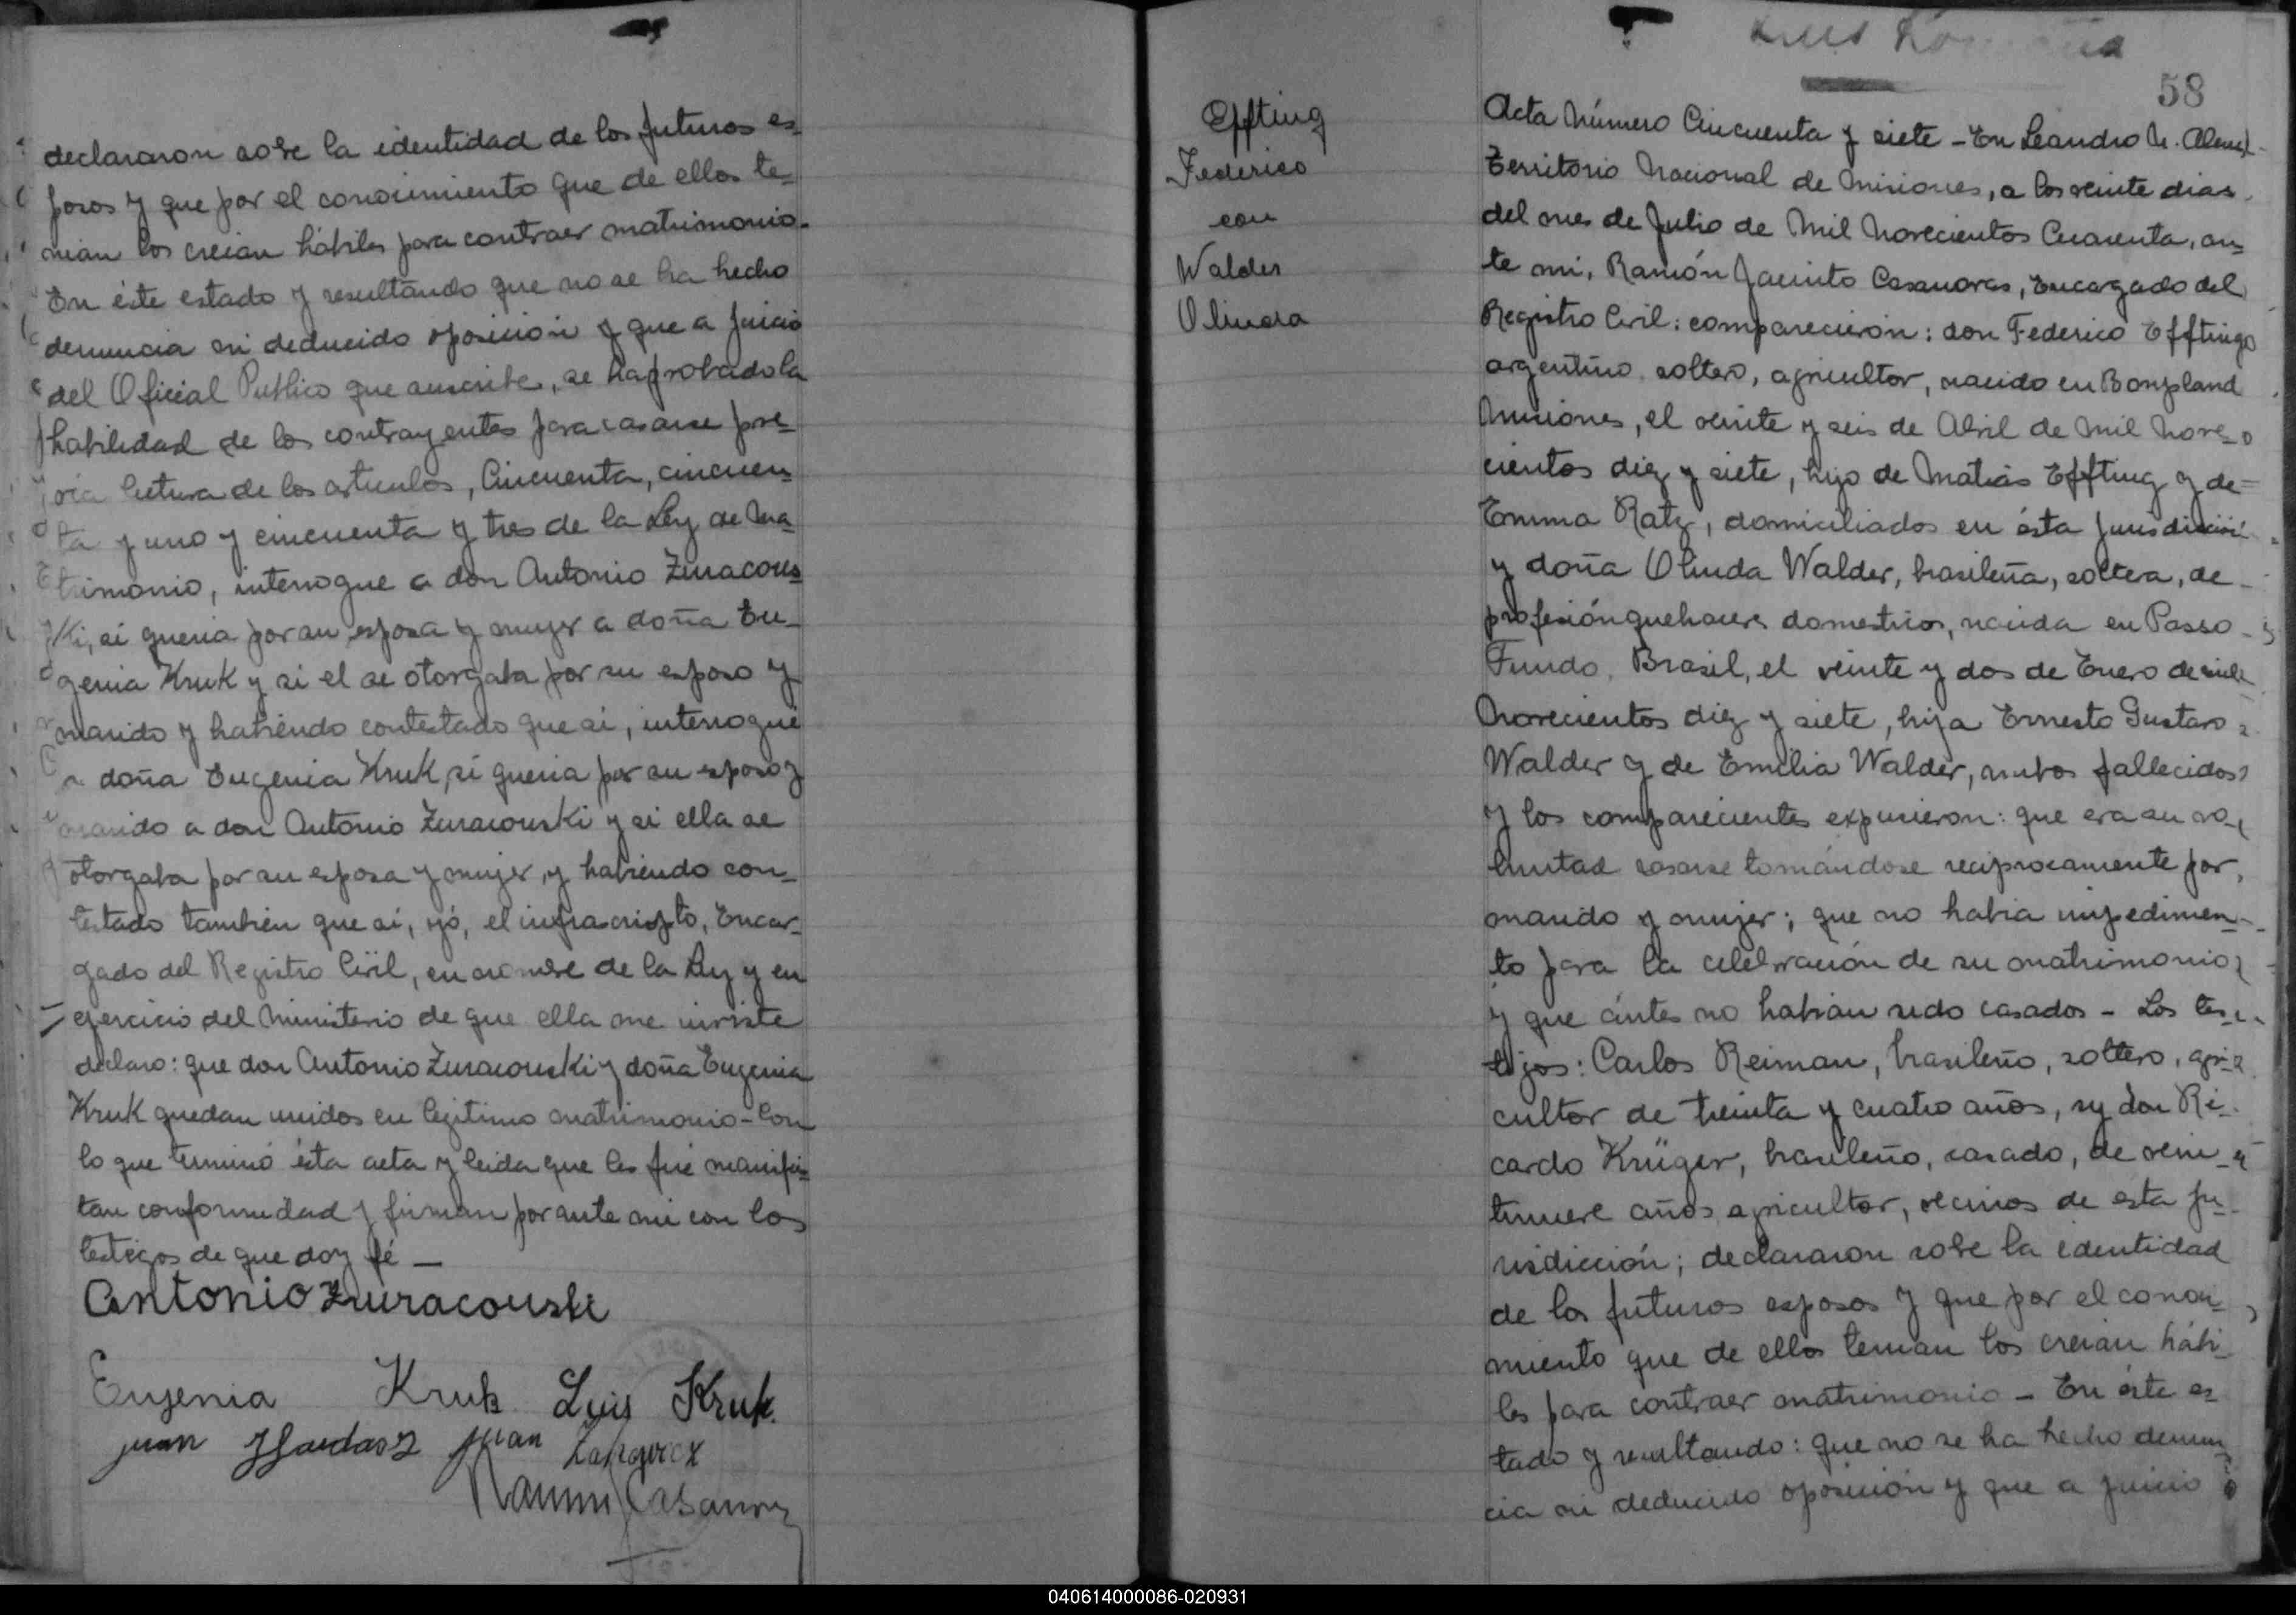 declararon sobre la identidad de los futuros es-
posos y que por el conocimiento que de ellos te-
nian los creian hábiles para contraer matrimonio.
En éste estado y resultando que no se ha hecho
denuncia ni deducido oposición y que a juicio
del Oficial Publico que suscribe, se ha probado la
habilidad de los contrayentes para casarse pre-
via lectura de los articulos, Cincuenta, cincuen-
ta y uno y cincuenta y tres de la Ley de Ma-
trimonio, interrogue a don Antonio Zuracous-
ki, si queria por su esposa y mujer a doña Eu-
genia Kruk y si el se otorgaba por su esposo y
marido y habiendo contestado que si, interrogué
a doña Eugenia Kruk, si queria por su esposo y
marido a don Antonio Zuracouski y si ella se
otorgaba por su esposa y mujer, y habiendo con-
testado tambien que si, yó, el infrascripto, Encar-
gado del Registro Civil, en nombre de la Ley y en
ejercicio del Ministerio de que ella me inviste
declaro: que don Antonio Zuracouski y doña Eugenia
Kruk quedan unidos en legitimo matrimonio - Con
lo que terminó ésta acta y leida que les fué manifies-
tan conformidad y firman por ante mi con los
testigos de que doy fé —
Antonio Zuracouski
Eugenia Kruk Luis Kruk
Juan Juan
Ramon Casanovas
58
Effting
Federico
con
Walder
Olinda
Acta Número Cincuenta y siete - En Leandro N. Alem,
Territorio Nacional de Misiones, a los veinte dias
del mes de Julio de Mil Novecientos Cuarenta, an-
te mi, Ramón Jacinto Casanovas, Encargado del
Registro Civil: comparecieron: don Federico Effting
argentino, soltero, agricultor, nacido en Bonpland
Misiones, el veinte y seis de Abril de Mil Nove-
cientos diez y siete, hijo de Matias Effting y de
Emma Ratz, domiciliados en ésta jurisdicción
y doña Olinda Walder, brasileña, soltera, de
profesión quehaceres domesticos, nacida en Passo
Fundo, Brasil, el veinte y dos de Enero de mil
Novecientos diez y siete, hija Ernesto Gustavo
Walder y de Emilia Walder, ambos fallecidos
y los comparecientes expusieron: que era su vo-
luntad casarse tomándose reciprocamente por
marido y mujer; que no habia impedimen-
to para la celebración de su matrimonio
y que ántes no habian sido casados - Los tes-
tigos: Carlos Reiman, brasileño, soltero, agri-
cultor de treinta y cuatro años, y don Ri-
cardo Krüger, brasileño, casado, de vein-
tinueve años, agricultor, vecinos de esta ju-
risdicción; declararon sobre la identidad
de los futuros esposos y que por el conoci-
miento que de ellos tenian los creian hábi-
les para contraer matrimonio - En éste es-
tado y resultando: que no se ha hecho denun-
cia ni deducido oposición y que a juicio
040614000086-020931